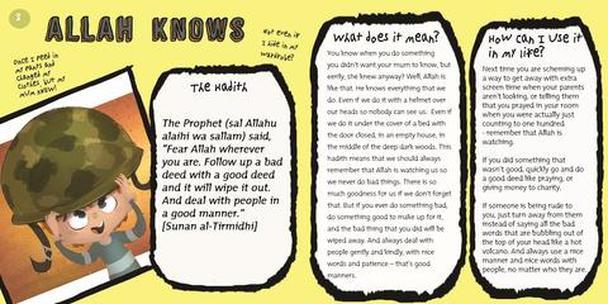 2
ALLAH KNOWS
Once I peed in
my pants and
changed my
clothes, but my
mum knew!
Not even if
I hide in my
wardrobe?
The Hadith
The Prophet (sal Allahu
alaihi wa sallam) said,
"Fear Allah wherever
you are. Follow up a bad
deed with a good deed
and it will wipe it out.
And deal with people in
a good manner."
[Sunan al-Tirmidhi]
What does it mean?
You know when you do something
you didn't want your mum to know, but
eerily, she knew anyway? Well, Allah is
like that. He knows everything that we
do. Even if we do it with a helmet over
our heads so nobody can see us. Even if
we do it under the cover of a bed with
the door closed, in an empty house, in
the middle of the deep dark woods. This
hadith means that we should always
remember that Allah is watching us so
we never do bad things. There is so
much goodness for us if we don't forget
that. But if you ever do something bad,
do something good to make up for it,
and the bad thing that you did will be
wiped away. And always deal with
people gently and kindly, with nice
words and patience – that's good
manners.
How can I use it
in my life?
Next time you are scheming up
a way to get away with extra
screen time when your parents
aren't looking, or telling them
that you prayed in your room
when you were actually just
counting to one hundred
- remember that Allah is
watching.
If you did something that
wasn't good, quickly go and do
a good deed like praying, or
giving money to charity.
If someone is being rude to
you, just turn away from them
instead of saying all the bad
words that are bubbling out of
the top of your head like a hot
volcano. And always use a nice
manner and nice words with
people, no matter who they are.